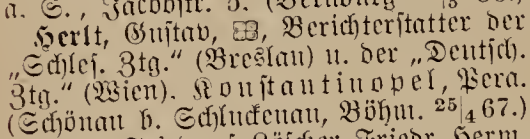 a. S., Jacobstr. 5. (Bernburg
Herlt, Gustav, Berichterstatter der
„Schles. Ztg.“ (Breslau) u. der „Deutsch.
Ztg.“ (Wien). Konstantinopel, Pera.
(Schönau b. Schluckenau, Böhm. 25/4 67.)
Friedr. Herm.